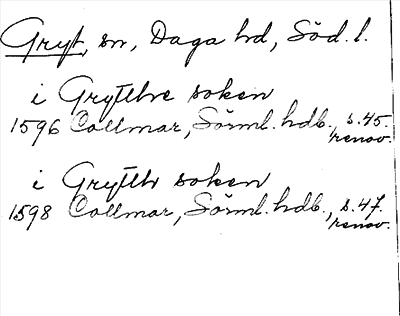 Gryt, sn, Daga hd, Söd. l.
i Grytthe soken
1596 Collmar, Sörml. hdb., s. 45.
renov.
i Grytth soken
1598 Collmar, Sörml. hdb., s. 47.
renov.